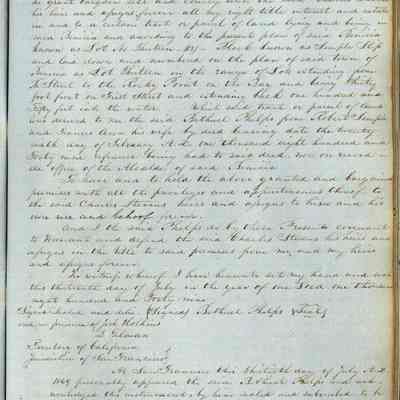 do grant bargain sell and convey unto the said
his heirs and assigns forever all my right title interest and estate
in and to a certain tract or parcel of land lying and being in
said Benicia and according to the printed plan of said Benicia
known as Lot No. Thirteen Block known as Semple Slip
and laid down and numbered on the plan of said town of
Benicia as Lot Thirteen in the range of Lots extending from
Street to the Rocky Point on the Bay and being Thirty
feet front on First Street and running back One hundred and
Fifty feet into the water. Which said tract or parcel of land
was deeded to me the said Bethuel Phelps from Robert Semple
and Frances Ann his wife by deed bearing date the twenty
sixth day of February A.D. one thousand eight hundred and
Forty nine reference being had to said deed now on record in
the office of the Alcalde of said Benicia
To have and to hold the above granted and bargained
premises with all the privileges and appurtenances thereof to
the said Charles Stearns heirs and assigns to him and his
own use and behoof forever.
And I the said Phelps do by these Presents covenant
to Warrant and defend the said Charles Stearns his heirs and
assigns in the title to said premises from me and my heirs
and assigns forever.
In witness whereof I have hereunto set my hand and seal
this thirteenth day of July in the year of our Lord one thousand
eight hundred and Forty nine
Signed sealed and deld (Signed) Bethuel Phelps (Seal)
in presence of
Territory of California
Jurisdiction of San Francisco
At San Francisco this thirtieth day of July A.D.
1849 personally appeared the said Bethuel Phelps and ack-
nowledged this instrument by him sealed and subscribed to be